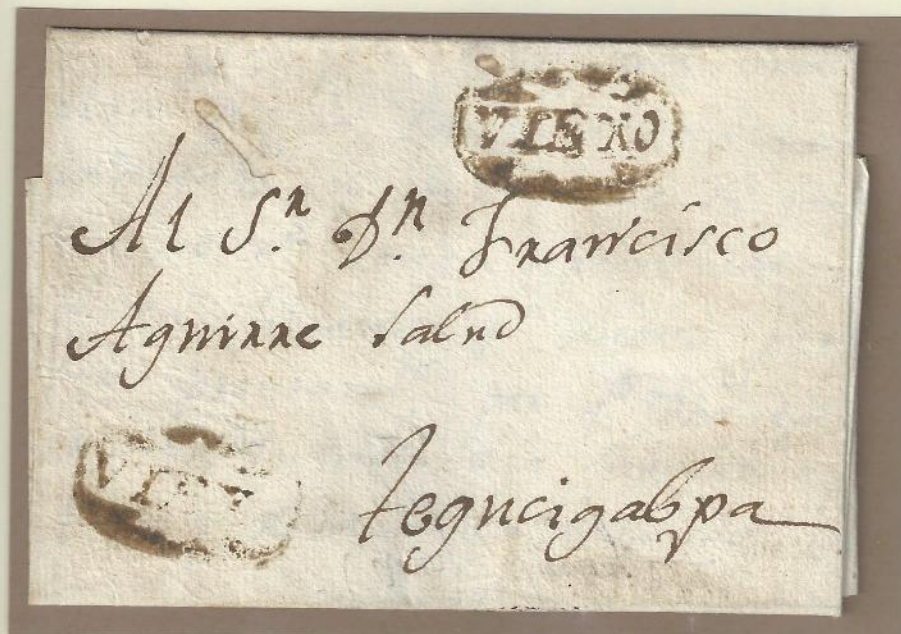 VIEXO
Al S.n D.n Francisco
Aguirre Salud
VIEX
Tegucigalpa